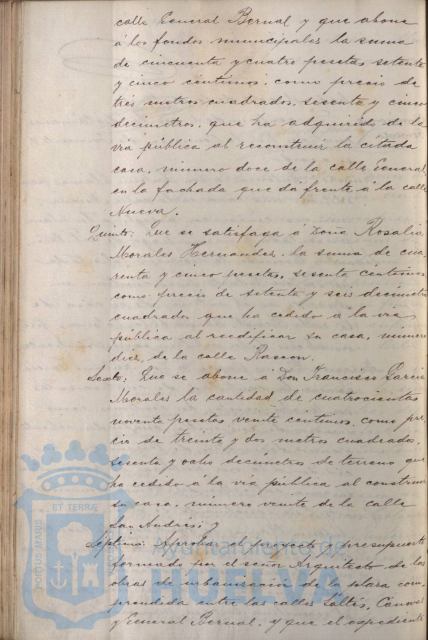 calle General Bernal y que abone
á los fondos municipales la suma
de cincuenta y cuatro pesetas, setenta
y cinco céntimos, como precio de
tres metros cuadrados, sesenta y cinco
decímetros, que ha adquirido de la
via pública al reconstruir la citada
casa, número doce de la calle General,
en la fachada que da frente á la calle
Nueva.
Quinto: Que se satisfaga á Doña Rosalia
Morales Hernandez, la suma de cua
renta y cinco pesetas, sesenta centimos
como precio de setenta y seis decimetros
cuadrados que ha cedido á la via
pública al reedificar su casa, número
diez, de la calle Rascon.
Sexto: Que se abone á Don Francisco Garcia
Morales la cantidad de cuatrocientas
noventa pesetas veinte centimos, como pre
cio de treinta y dos metros cuadrados,
sesenta y ocho decimetros de terreno que
ha cedido á la via pública al construir
su casa, número veinte de la calle
San Andres; y
Séptimo: Aprobar el proyecto y presupuesto
formado por el señor Arquitecto de las
obras de urbanizacion de la plaza com
prendida entre las calles Saltés, Cánovas
y General Bernal, y que el expediente
PORTUS MARIS ET TERRÆ
Ayuntamiento de
HUELVA